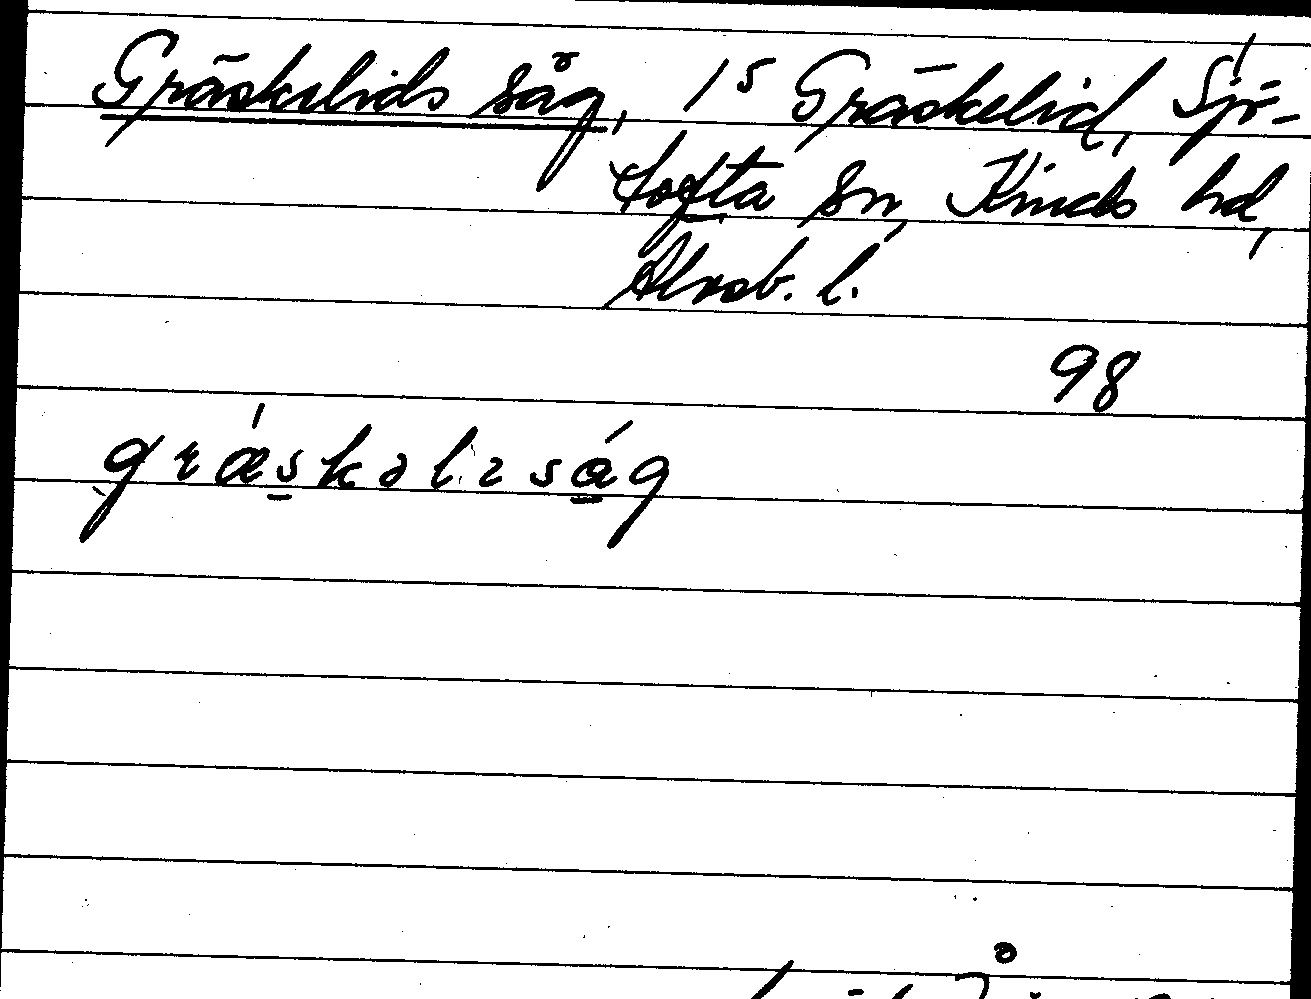 Gräskelids såg, 1⁵ Gräskelid, Sjö-
tofta sn, Kinds hd,
Älvsb. l.
98
græ´skəlizsǻg